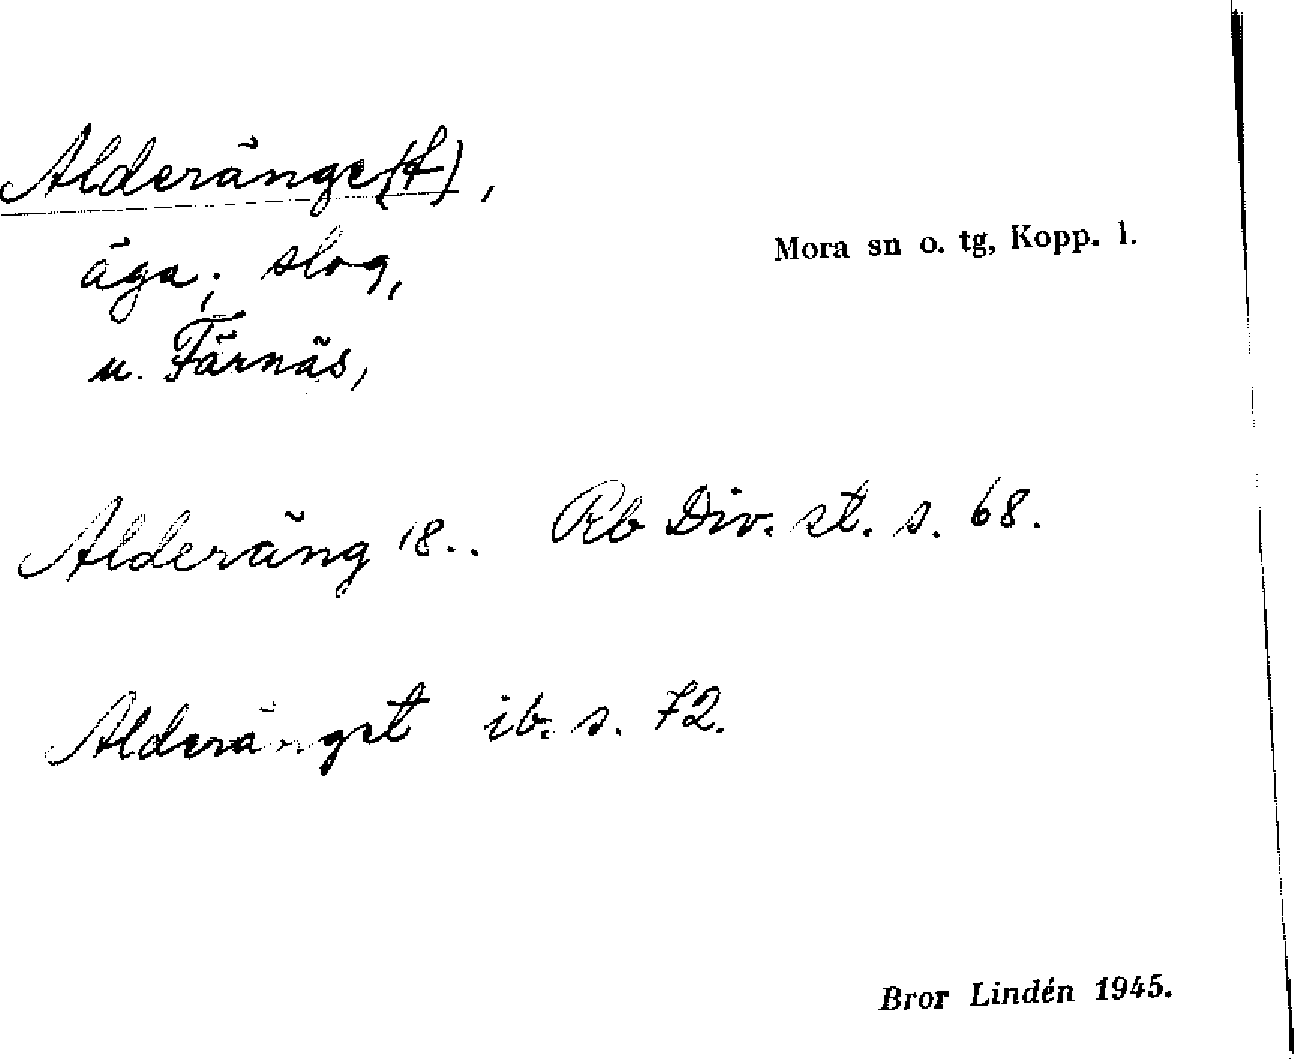 Alderänge(t),
Mora sn o. tg, Kopp. l.
äga; slog,
u. Färnäs,
Alderäng 18.. Rb Div. st. s. 68.
Alderänget ib. s. 72.
Bror Lindén 1945.